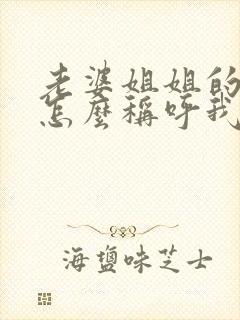 老婆姐姐的
怎麼稱呼我
海鹽味芝士